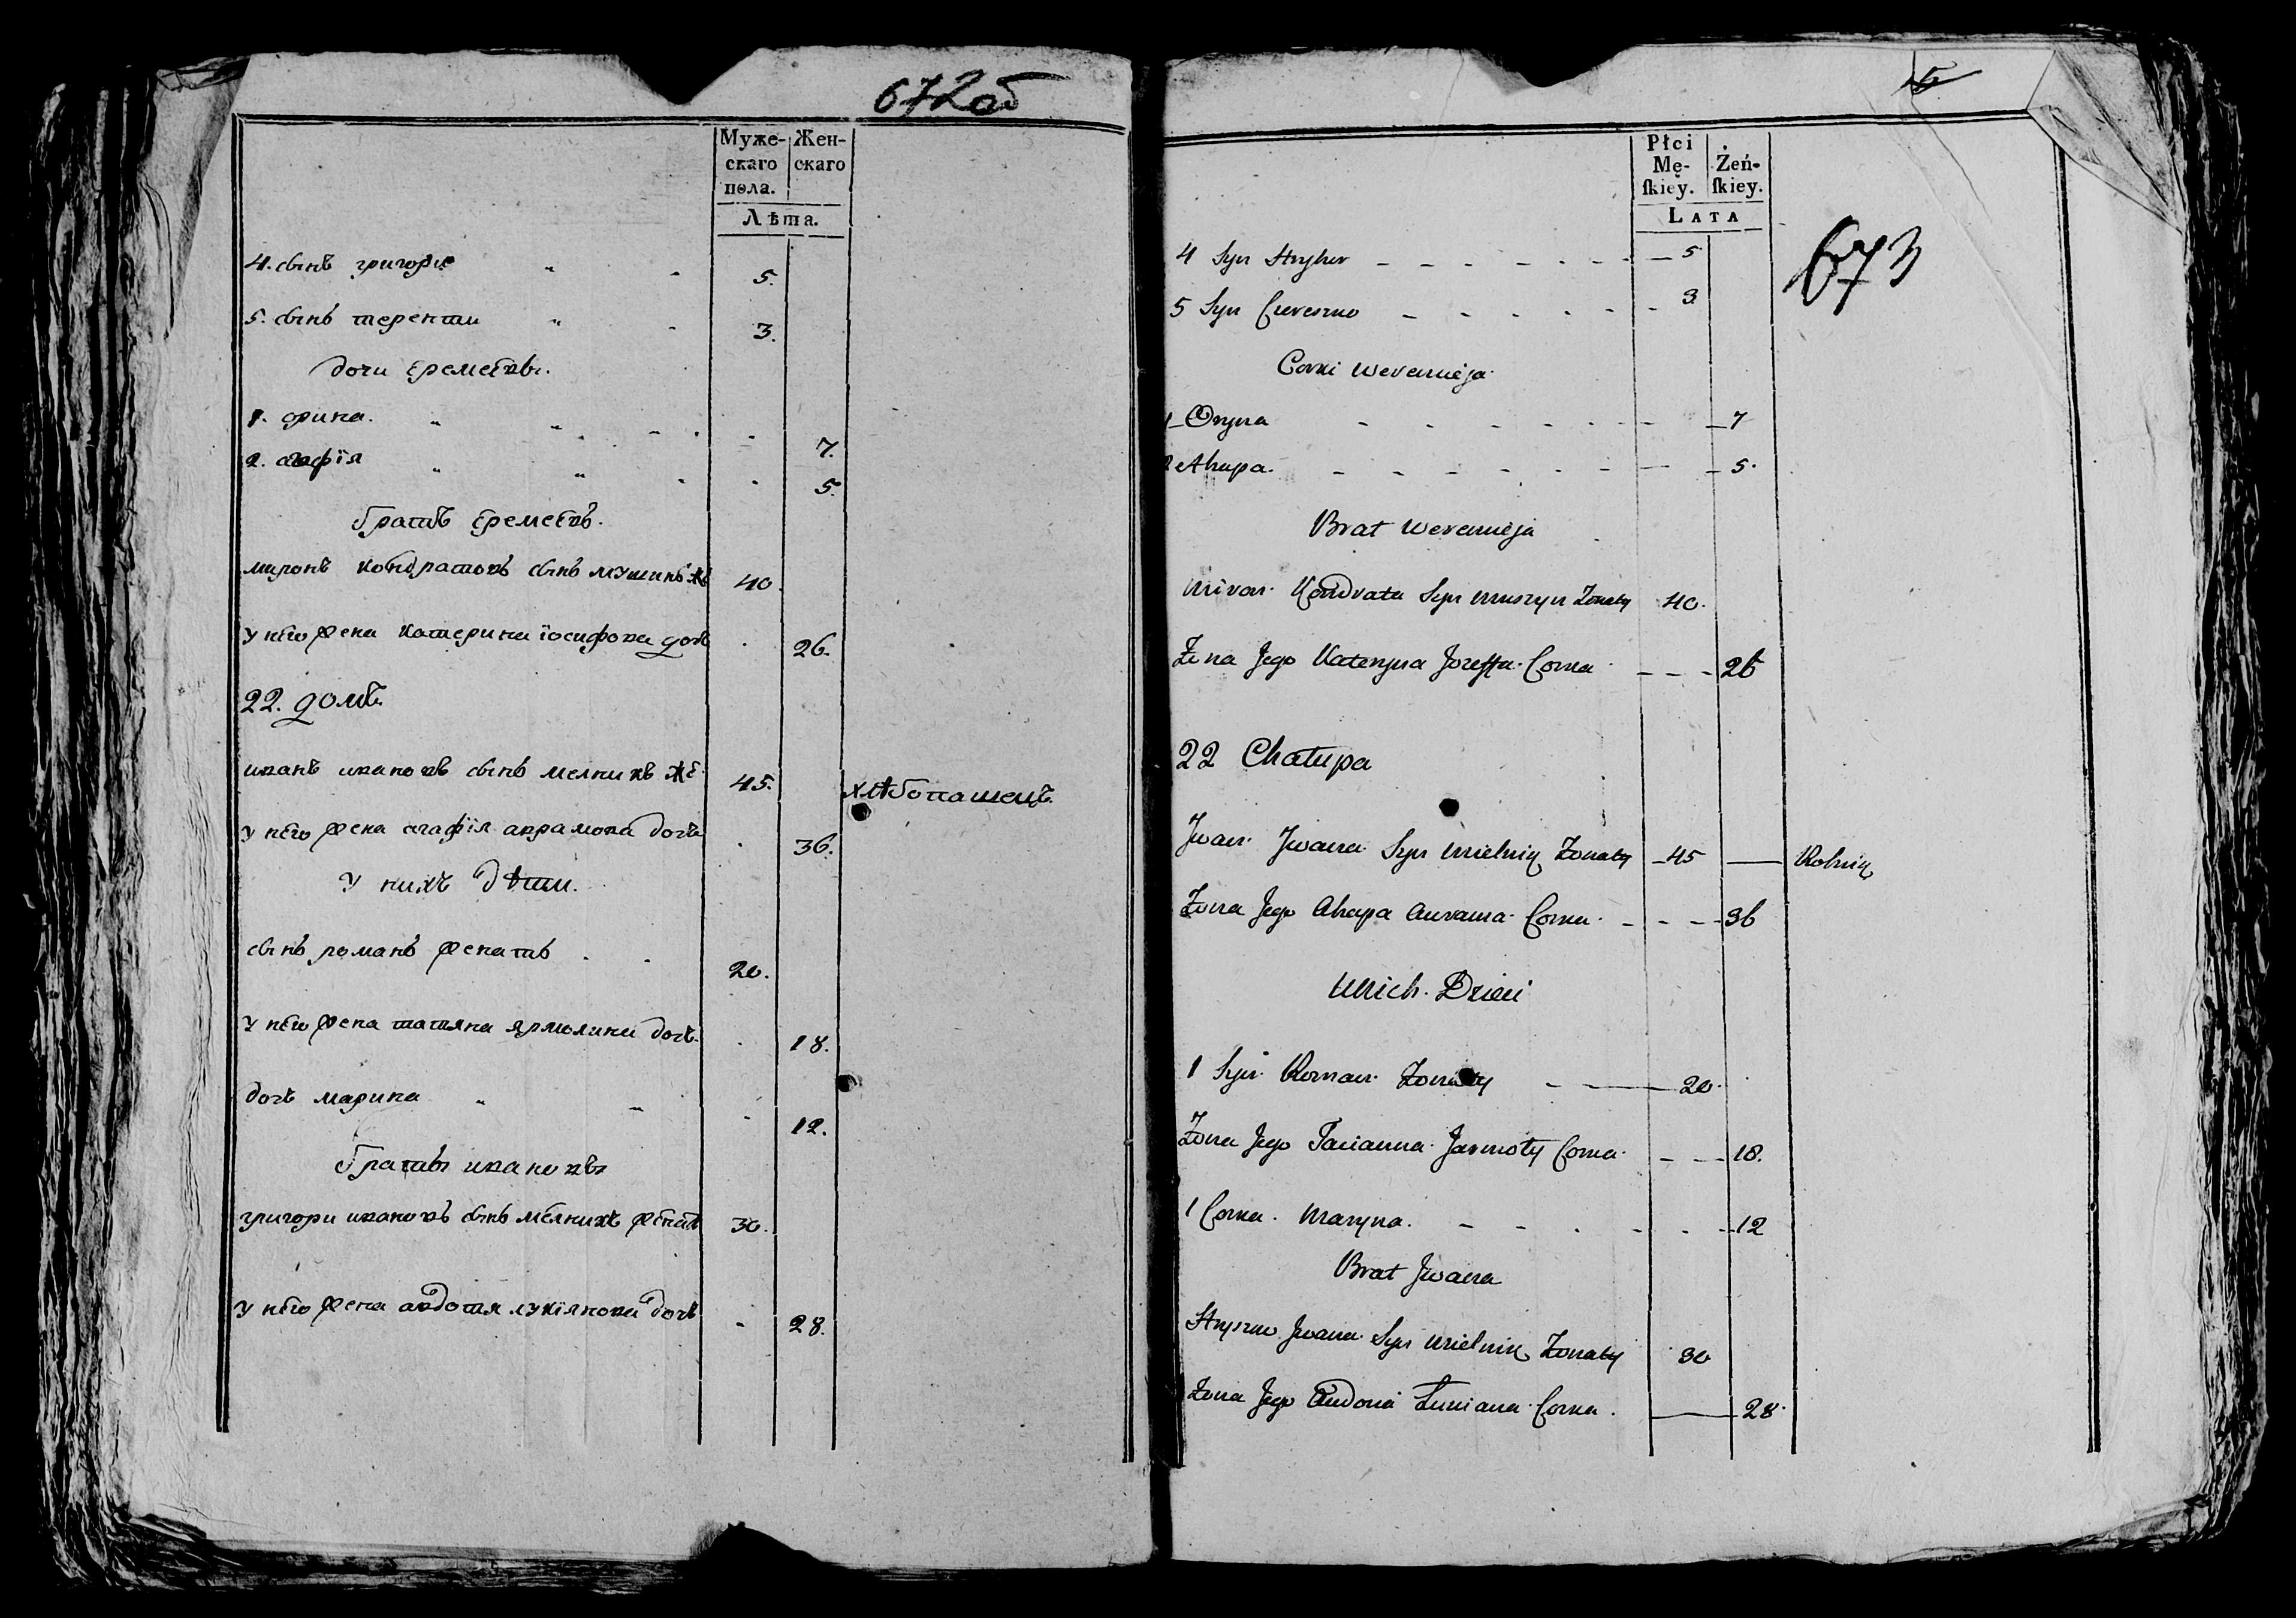 672 об
Муже-
скаго
пола.
Жен-
скаго
Лѣта.
4. сынъ григоре 5.
5. сынъ теренти 3.
дочи еремеевы.
1. орина. 7.
2. агафїя 5.
братъ еремеевъ.
миронъ кондратовъ сынъ мушинъ же 40.
у него жена катерина іосифова дочь 26.
22. домъ
иванъ ивановъ сынъ мелникъ же. 45. хлѣбопашецъ.
у него жена агафїя аврамова дочь 36.
у нихъ дѣти.
сынъ романъ женатъ 20.
у него жена татяна ярмолина дочь. 18.
дочь марина 12.
братъ ивановъ
григори ивановъ сынъ мелникъ женатъ 30.
у него жена авдотя лукіянова дочь 28.
5
673
Płci
Mę-
ſkiey.
Żeń-
ſkiey.
LATA
4 Syn Hryhor 5
5 Syn 3
Corki Weremieja
1 Oryna 7
2 Ahapa. 5.
Brat Weremieja
Miron Kondrata Syn Muszyn Żonaty 40.
Żona Jego Kateryna Jozeffa Corka 26
22 Chałupa
Jwan Jwana Syn Mielnik Żonaty 45 Rolnik
Żona Jego Ahapa Awrama Corka 36
U nich Dzieci
1 Syn Roman Żonaty 20.
Żona Jego Tacianna Jarmoły Corka 18.
1 Corka Maryna. 12
Brat Jwana
Jwana Syn Mielnik Żonaty 30
Żona Jego Audocia Łukiana Corka. 28.